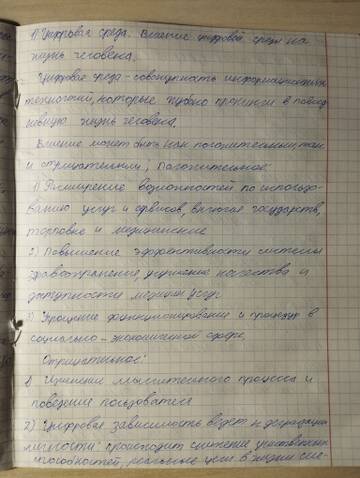 1) Цифровая среда. Влияние цифровой среды на
жизнь человека.
Цифровая среда - совокупность информационных
технологий, которые глубоко проникли в повсед
невную жизнь человека.
Влияние может быть как положительным, так
и отрицательным; Положительное:
1) Расширение возможностей по использо-
ванию услуг и сервисов, включая государств,
торговые и медицинские
2) Повышение эффективности системы
здравоохранения, улучшение качества и
доступности медицин услуг
3) Упрощение функционирования и процедур в
социально-экономической сфере,
Отрицательное:
1) Изменение мыслительного процесса и
поведения пользователя
2) Цифровая зависимость ведет к деградации
личности: происходит снижение умственных
способностей, реальные цели в жизни сме-